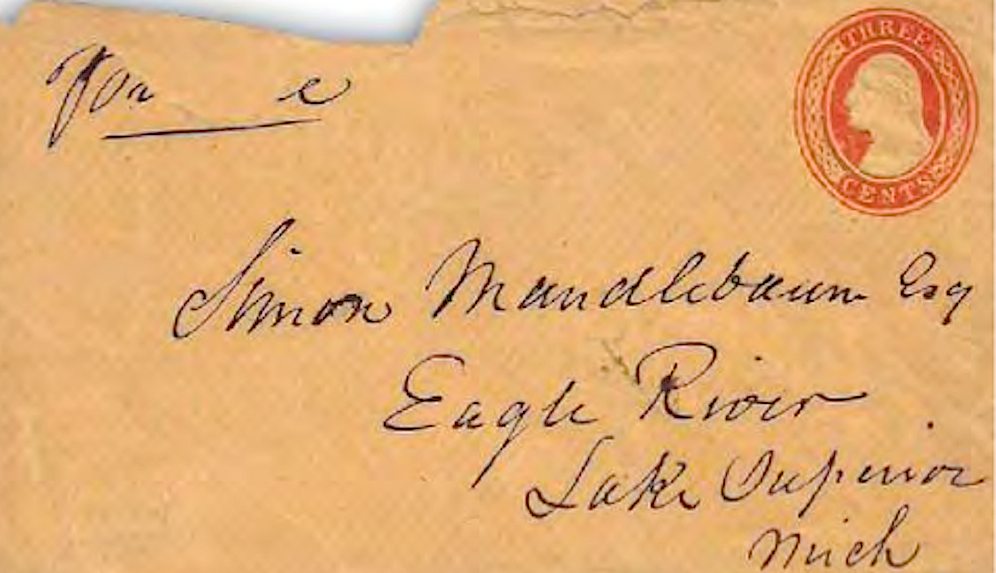 THREE
CENTS
Simon Mandlebaum Esq
Eagle River
Lake Superior
Mich